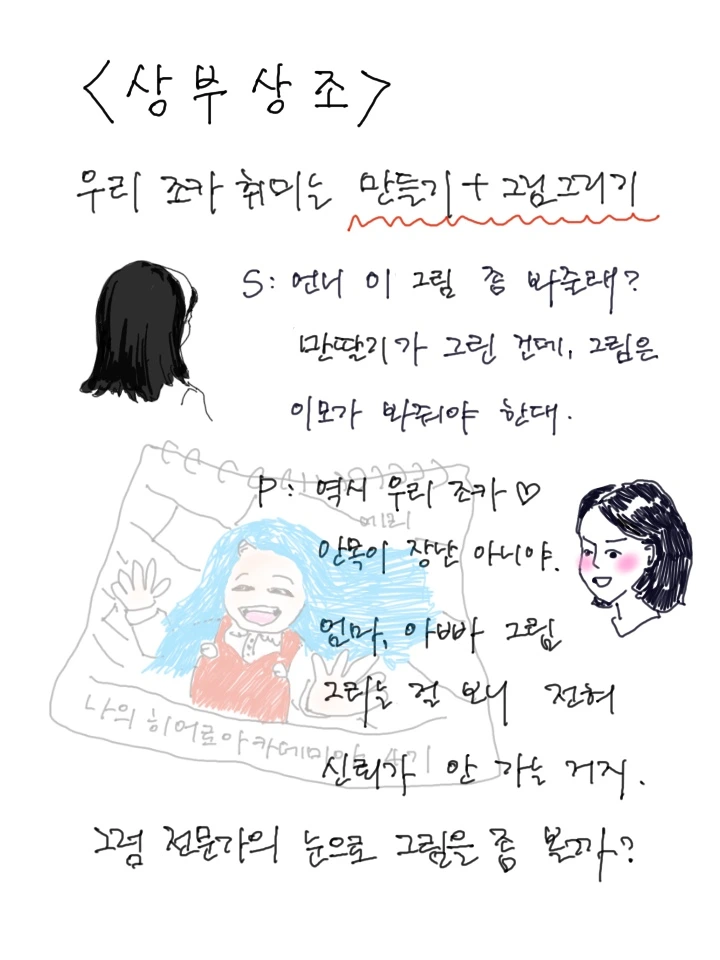 <상부상조>
우리 조카 취미는 만들기+그림그리기
S: 언니 이 그림 좀 봐줄래?
만딸기가 그린 건데, 그림은
이모가 봐줘야 한대.
P: 역시 우리 조카♡
에리
안목이 장난 아니야.
엄마, 아빠 그림
그리는 걸 보니 전혀
신뢰가 안 가는 거지.
나의 히어로아카데미아 4기
그럼 전문가의 눈으로 그림을 좀 볼까?